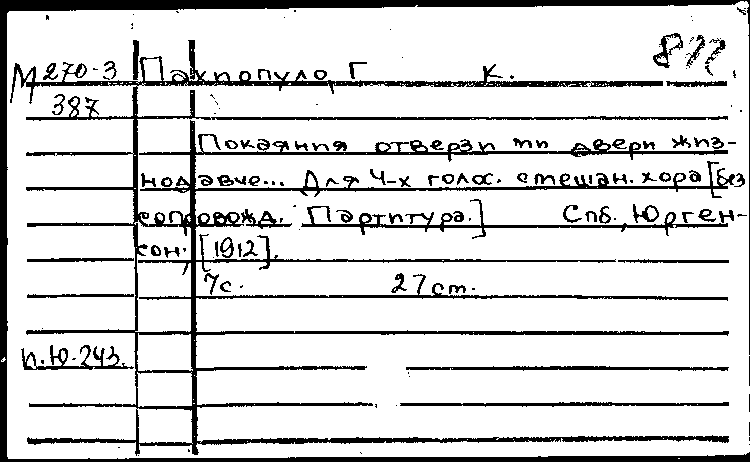 822.
М 270-3 Пахпопуло, Г К.
387
Покаяния отверзи ми двери жиз-
нодавче... Для 4-х голос. смешан. хора [без
сопровожд. Партитура.] Спб., Юрген-
сон, [1912].
7с. 27 см.
п. Ю-243.